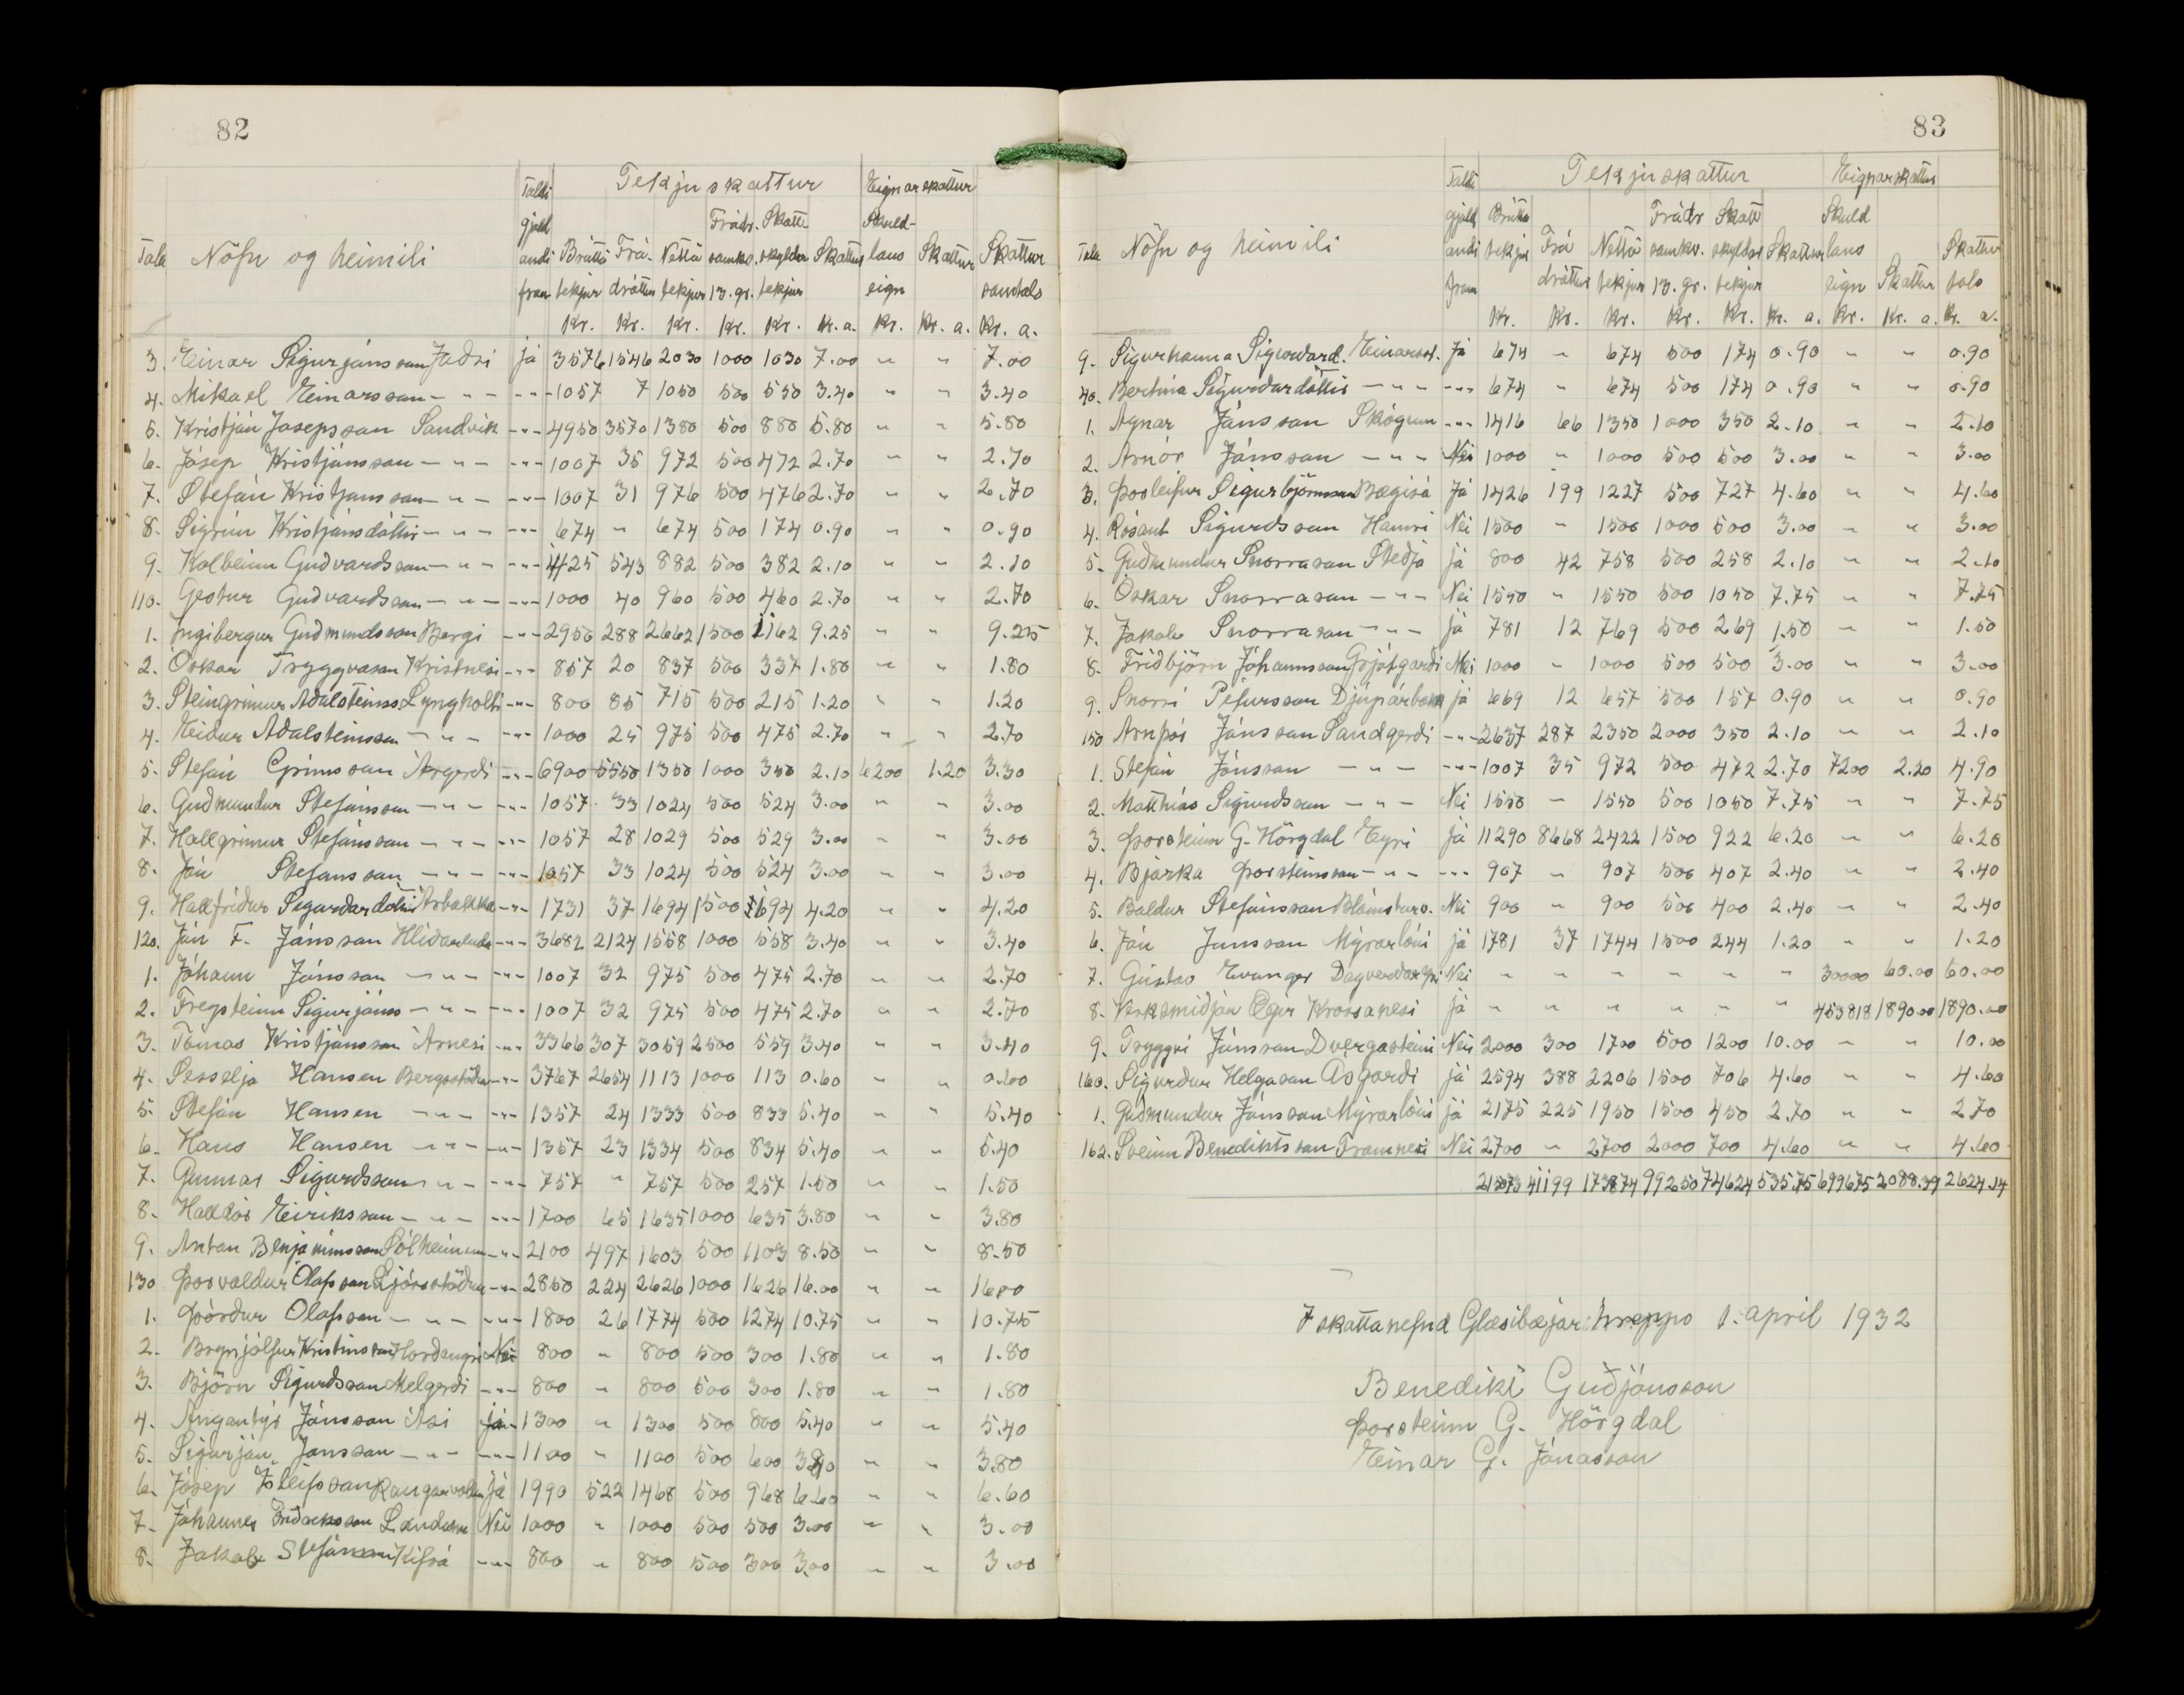 82
Taldi Tekjuskattur Eignarskattur
gjald Frádr. Skatt Skuld-
Tala Nöfn og heimili andi Brúttó Frá- Nettó samkv. skyldar Skattur laus Skattur Skattur
fram tekjur dráttur tekjur 13. gr. tekjur eign samtals
Kr. Kr. Kr. Kr. Kr. Kr. a. Kr. Kr. a. Kr. a.
3. Einar Sigurjónsson Jaðri já 3576 1546 2030 1000 1030 7.00 " " 7.00
4. Mikael Einarsson - " - -"- 1057 7 1050 500 550 3.40 " " 3.40
5. Kristján Jósepsson Sandvík -"- 4950 3570 1380 500 880 5.80 " " 5.80
6. Jósep Kristjánsson - " - -"- 1007 35 972 500 472 2.70 " " 2.70
7. Stefán Kristjánsson - " - -"- 1007 31 976 500 476 2.70 " " 2.70
8. Sigrún Kristjánsdóttir - " - -"- 674 " 674 500 174 0.90 " " 0.90
9. Kolbeinn Guðvarðsson - " - -"- 1425 543 882 500 382 2.10 " " 2.10
110. Gestur Guðvarðsson - " - -"- 1000 40 960 500 460 2.70 " " 2.70
1. Ingibergur Guðmundsson Bergi -"- 2950 288 2662 1500 1162 9.25 " " 9.25
2. Óskar Tryggvason Kristnesi -"- 857 20 837 500 337 1.80 " " 1.80
3. Steingrímur Aðalsteinss Lyngholti -"- 800 85 715 500 215 1.20 " " 1.20
4. Heiðar Aðalsteinsson - " - -"- 1000 25 975 500 475 2.70 " " 2.70
5. Stefán Grímsson Árgerði -"- 6900 5550 1350 1000 350 2.10 6200 1.20 3.30
6. Guðmundur Stefánsson - " - -"- 1057 33 1024 500 524 3.00 " " 3.00
7. Hallgrímur Stefánsson - " - -"- 1057 28 1029 500 529 3.00 " " 3.00
8. Jón Stefánsson - " - -"- 1057 33 1024 500 524 3.00 " " 3.00
9. Hallfríður Sigurðardóttir Árbakka -"- 1731 37 1694 1500 694 4.20 " " 4.20
120. Jón F. Jónsson Hlíðarenda -"- 3682 2124 1558 1000 558 3.40 " " 3.40
1. Jóhann Jónsson - " - -"- 1007 32 975 500 475 2.70 " " 2.70
2. Freysteinn Sigurjóns - " - -"- 1007 32 975 500 475 2.70 " " 2.70
3. Tómas Kristjánsson Árnesi -"- 3366 307 3059 2500 559 3.40 " " 3.40
4. Sesselja Hansen Bergsstöðum -"- 3767 2654 1113 1000 113 0.60 " " 0.60
5. Stefán Hansen - " - -"- 1357 24 1333 500 833 5.40 " " 5.40
6. Hans Hansen - " - -"- 1357 23 1334 500 834 5.40 " " 5.40
7. Gunnar Sigurdsson - " - -"- 757 " 757 500 257 1.50 " " 1.50
8. Halldór Eiríksson - " - -"- 1700 65 1635 1000 635 3.80 " " 3.80
9. Anton Benjamínsson Sólheimum -"- 2100 497 1603 500 1103 8.50 " " 8.50
130 Þorvaldur Ólafsson Ljósstöðum -"- 2850 224 2626 1000 1626 16.00 " " 16.00
1. Þórður Ólafsson - " - -"- 1800 26 1774 500 1274 10.75 " " 10.75
2. Brynjólfur Kristinsson Hörðangri Nei 800 " 800 500 300 1.80 " " 1.80
3. Björn Sigurðsson Melgerði -"- 800 " 800 500 300 1.80 " " 1.80
4. Angantýr Jónsson Ási já 1300 " 1300 500 800 5.40 " " 5.40
5. Sigurjón Jónsson - " - -"- 1100 " 1100 500 600 3.80 " " 3.80
6. Jósep Ísleifsson Rangárvöllum Já 1990 522 1468 500 968 6.60 " " 6.60
7. Jóhannes Friðrekssson Löndum Nei 1000 " 1000 500 500 3.00 " " 3.00
8. Jakob Stefánsson Kífsá -"- 800 " 800 500 300 3.00 " " 3.00
83
Taldi Tekjuskattur Eignarskattur
gjald Brúttó Frádr Skatt Skuld
Tala Nöfn og heimili andi tekjur Frá Nettó samkv. skyldar Skattur laus Skattur
fram dráttur tekjur 13. gr. tekjur eign Skattur tals
Kr. Kr. Kr. Kr. Kr. Kr. a. Kr. Kr. a. Kr. a.
9. Sigurhanna Sigurðard. Einarsst. Já 674 " 674 500 174 0.90 " " 0.90
40. Bertína Sigurðardóttir - " - -"- 674 " 674 500 174 0.90 " " 0.90
1. Agnar Jónsson Skógum -"- 1416 66 1350 1000 350 2.10 " " 2.10
2. Arnór Jónsson - " - Nei 1000 " 1000 500 500 3.00 " " 3.00
3. Þorleifur Sigurbjörnsson Bægisá Já 1426 199 1227 500 727 4.60 " " 4.60
4. Rósant Sigurdsson Hamri Nei 1500 " 1500 1000 500 3.00 " " 3.00
5. Guðmundur Snorrason Steðja já 800 42 758 500 258 2.10 " " 2.10
6. Óskar Snorrason - " - Nei 1550 " 1550 500 1050 7.75 " " 7.75
7. Jakob Snorrason - " - já 781 12 769 500 269 1.50 " " 1.50
8. Friðbjörn Jóhannsson Grjótgarði Nei 1000 " 1000 500 500 3.00 " " 3.00
9. Snorri Pétursson Djúpárbakka já 669 12 657 500 157 0.90 " " 0.90
150 Arnþór Jónsson Sandgerði -"- 2637 287 2350 2000 350 2.10 " " 2.10
1. Stefán Jónsson - " - -"- 1007 35 972 500 472 2.70 7200 2.20 4.90
2. Matthías Sigurdsson - " - Nei 1550 - 1550 500 1050 7.75 " " 7.75
3. Þorsteinn G. Hörgdal Eyri já 11290 8668 2422 1500 922 6.20 " " 6.20
4. Bjarka Þorsteinsson - " - -"- 907 " 907 500 407 2.40 " " 2.40
5. Baldur Stefánsson Blómsturv. Nei 900 " 900 500 400 2.40 " " 2.40
6. Jón Jónsson Mýrarlóni já 1781 37 1744 1500 244 1.20 " " 1.20
7. Gústav Evanger Dagverðareyri Nei " " " " " " 30000 60.00 60.00
8. Verksmiðjan Ægir Krossanesi já " " " " " " 453818 1890.00 1890.00
9. Tryggvi Jónsson Dvergasteini Nei 2000 300 1700 500 1200 10.00 " " 10.00
160. Sigurður Helgason Ásgarði já 2594 388 2206 1500 706 4.60 " " 4.60
1. Guðmundur Jónsson Mýrarlóni já 2175 225 1950 1500 450 2.70 " " 2.70
162. Sveinn Benediktsson Framnesi Nei 2700 " 2700 2000 700 4.60 " " 4.60
41199 173874 99250 74624 535.75 699675 2088.39 2624.14
Í skattanefnd Glæsibæjarhrepps 1. apríl 1932
Benedikt Guðjónsson
Þorsteinn G. Hörgdal
Einar G. Jónasson